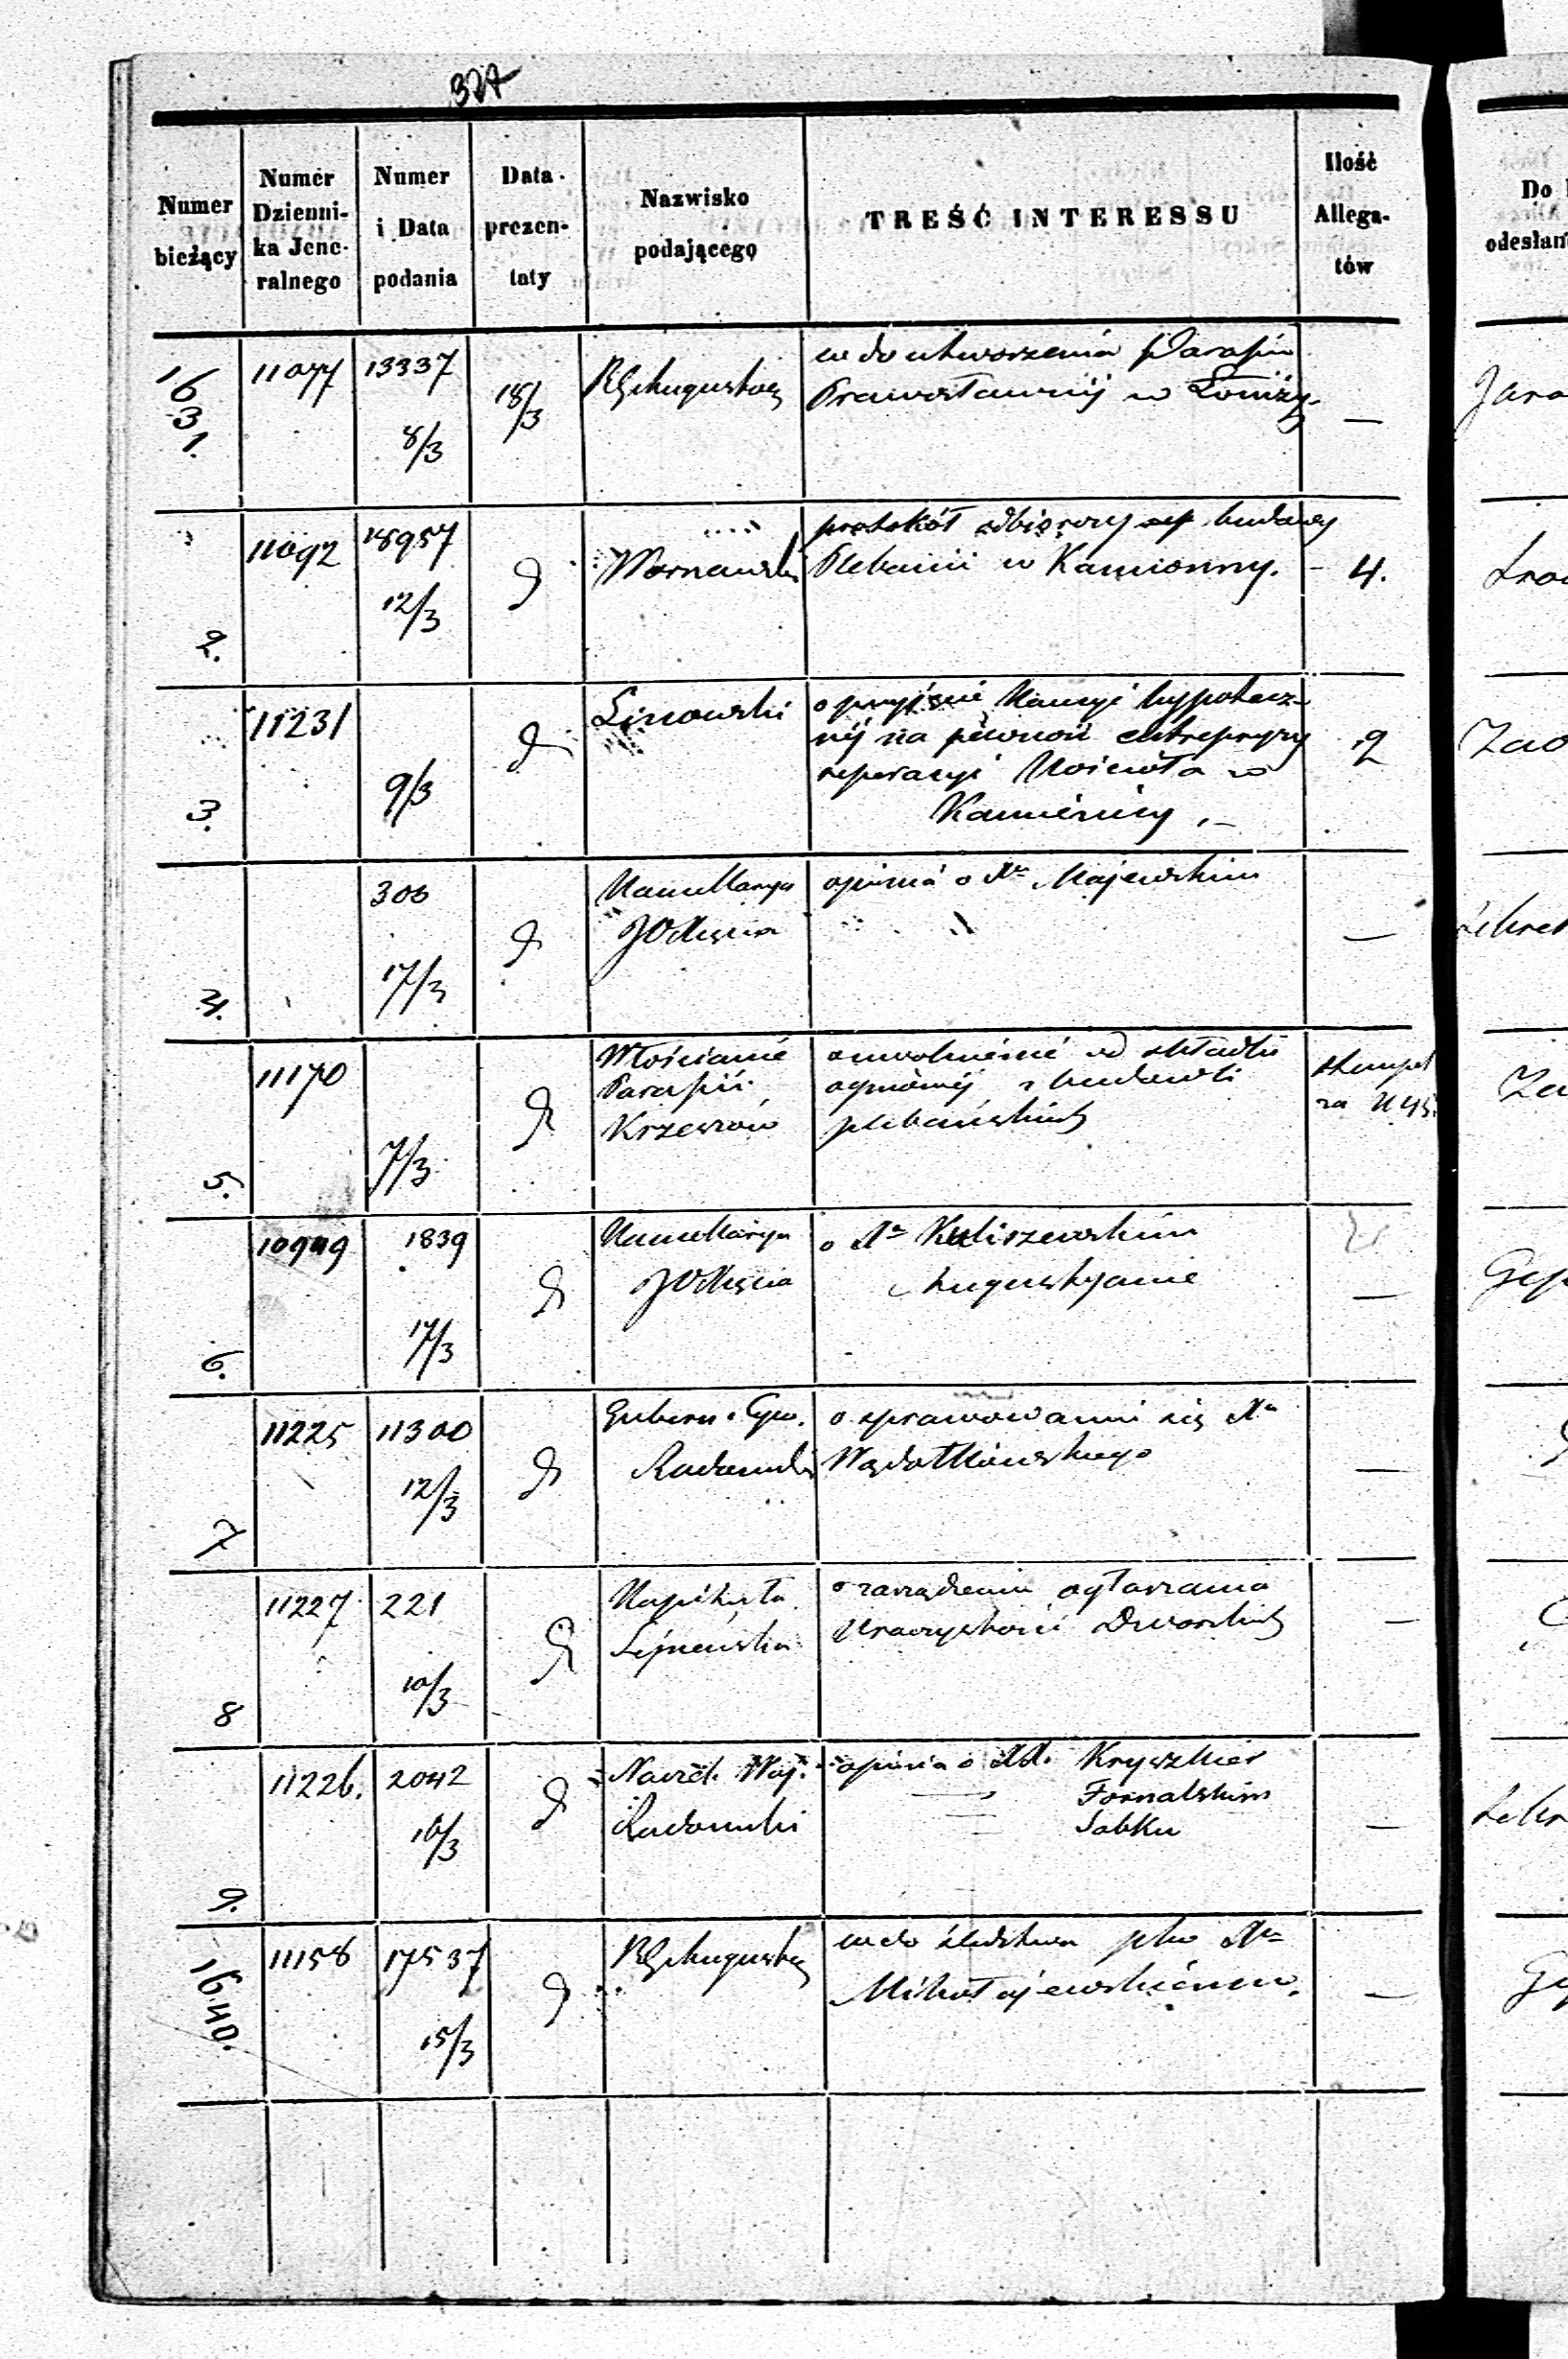 327
Numer bieżący
Numer Dzienni-ka Jene-ralnego
Numer i Data podania
Data prezen-taty
Nazwisko podającego
TREŚĆ INTERESSU
Ilość Allega-tów
Do
odesłan
1631. 11077 13337 8/3 18/3 RGAugustow
w do utworzenia Parafii
Prawosławnij w Łomży. —
Jaro
2. 11092 18957 12/3 d
protokół odbiorczy budowy
Plebanii w Kamionny. 4.
3. 11231 9/3 d Linowski
o przyjęcie Kaucyi hypotecz-
nij na pewność entrepryzy
reperacyi Kościoła w
Kamienicy 2
4. 17/3 d Kancellarya
JOXięcia
opinia o Xu Majewskim —
5. 11170 7/3 d Włościanie
Parafii
Krzeszów
o uwolnienie od składki
ogniowij z budowli
plebańskich
stempel
za K 45.
6. 10949 1839 17/3 d Kancellarya
JOXięcia
o Xu Kaliszewskim
Augustyanie —
7 11225 11300 12/3 d Gubern. Cyw.
Radomski
o sprawowaniu się Xa —
8 11227 221 10/3 d Kapituła
Sejneńska
o zarządzeniu ogłaszania
Uroczystości Dworskich —
9. 11226. 2042 16/3 d Naczel. Woj.
Radomski
opinia o XX. Kryszkier
Fornalskim
Sobku —
1640. 11158 17537 15/3 d RGAugustow
w do śledztwa pko Xu
Mikołajewskiemu. —